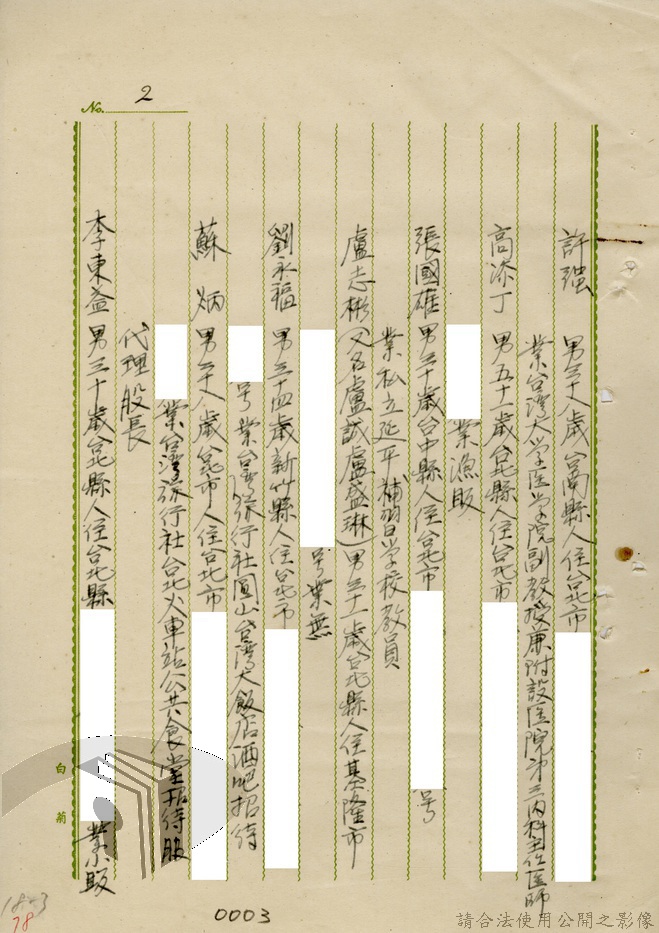 No. 2
許強 男三十八歲台南縣人住台北市
業台灣大学医学院副教授兼附設医院第三內科主任医師
高添丁 男五十一歲台北縣人住台北市
業漁販
張國雄 男三十歲台中縣人住台北市 号
業私立延平補習学校教員
盧志彬（又名盧誠盧盛琳）男三十一歲台北縣人住基隆市
号業無
劉永福 男三十四歲新竹縣人住台北市
号業台灣旅行社圓山台灣大飯店酒吧招待
蘇炳 男三十八歲台北市人住台北市
業台灣旅行社台北火車站公共食堂招待股
代理股長
李東益 男三十歲台北縣人住台北縣 業小販
白菊
0003
1803
78
請合法使用公開之影像